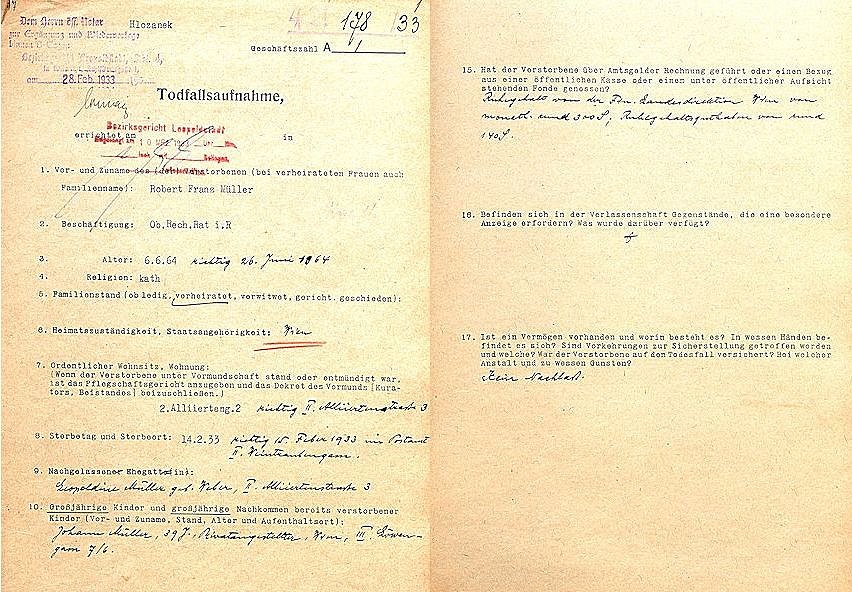 Dem Herrn öff. Notar
Hlozanek
178
33
zur Ergänzung und Wiedervorlage
Geschäftszahl A 1
am 28. Feb. 1933
Todfallsaufnahme,
Bezirksgericht Leopoldstadt
errichtet am in
1. Vor- und Zuname des (der) Verstorbenen (bei verheirateten Frauen auch
Familienname): Robert Franz Müller
2. Beschäftigung: Ob.Rech.Rat i.R
3. Alter: 6.6.64 richtig 26. Juni 1864
4. Religion: kath
5. Familienstand (ob ledig, verheiratet, verwitwet, gericht. geschieden):
6. Heimatszuständigkeit, Staatsangehörigkeit: Wien
7. Ordentlicher Wohnsitz, Wohnung:
(Wenn der Verstorbene unter Vormundschaft stand oder entmündigt war,
ist das Pflegschaftsgericht anzugeben und das Dekret des Vormunds [Kura-
tors, Beistandes] beizuschließen.)
2.Alliierteng.2 richtig II. Alliiertenstrasse 3
8. Sterbetag und Sterbeort: 14.2.33 richtig 15. Feber 1933 im
II. Weintraubengasse.
9. Nachgelassener Ehegatte(in):
Leopoldine Müller geb. Weber, II. Alliiertenstrasse 3
10. Großjährige Kinder und großjährige Nachkommen bereits verstorbener
Kinder (Vor- und Zuname, Stand, Alter und Aufenthaltsort):
Johann Müller, 39 J., Privatangestellter, Wien, III. Löwen-
gasse 7/6.
15. Hat der Verstorbene über Amtsgelder Rechnung geführt oder einen Bezug
aus einer öffentlichen Kasse oder einem unter öffentlicher Aufsicht
stehenden Fonde genossen?
Ruhegehalt von der Fin. Landesdirektion Wien von
monatl. rund 300 S; Ruhegehaltsguthaben von rund
140 S.
16. Befinden sich in der Verlassenschaft Gegenstände, die eine besondere
Anzeige erfordern? Was wurde darüber verfügt?
17. Ist ein Vermögen vorhanden und worin besteht es? In wessen Händen be-
findet es sich? Sind Vorkehrungen zur Sicherstellung getroffen worden
und welche? War der Verstorbene auf den Todesfall versichert? Bei welcher
Anstalt und zu wessen Gunsten?
Kein Nachlaß.